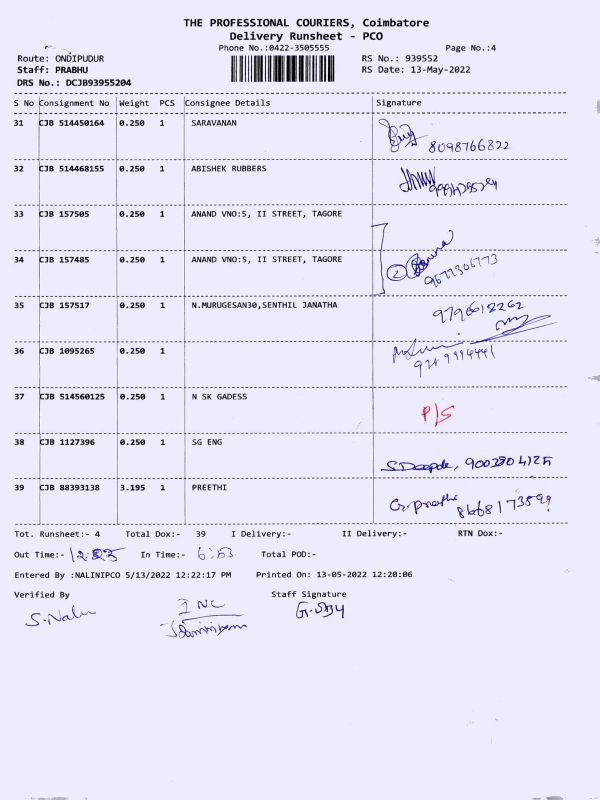 THE PROFESSIONAL COURIERS, Coimbatore
Delivery Runsheet - PCO
Phone No.:0422-3505555 Page No.:4
Route: ONDIPUDUR RS No.: 939552
Staff: PRABHU RS Date: 13-May-2022
DRS No.: DCJB93955204
S No Consignment No Weight PCS Consignee Details Signature
31 CJB 514450164 0.250 1 SARAVANAN
8098766822
32 CJB 514468155 0.250 1 ABISHEK RUBBERS
33 CJB 157505 0.250 1 ANAND VNO:5, II STREET, TAGORE
34 CJB 157485 0.250 1 ANAND VNO:5, II STREET, TAGORE
2
9677306773
35 CJB 157517 0.250 1 N.MURUGESAN30,SENTHIL JANATHA
36 CJB 1095265 0.250 1
37 CJB 514560125 0.250 1 N SK GADESS
P/S
38 CJB 1127396 0.250 1 SG ENG
39 CJB 88393138 3.195 1 PREETHI
Tot. Runsheet:- 4 Total Dox:- 39 I Delivery:- II Delivery:- RTN Dox:-
Out Time:- In Time:- Total POD:-
Entered By :NALINIPCO 5/13/2022 12:22:17 PM Printed On: 13-05-2022 12:20:06
Verified By Staff Signature
S. Nalu INC